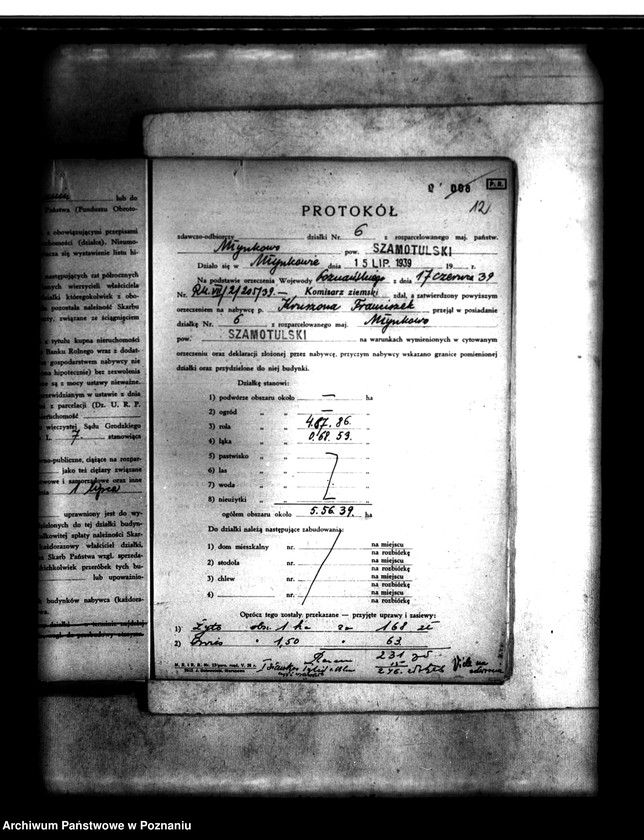 lub do
Państwa (Funduszu Obroto-
z obowiązującymi przepisami
homości (działce). Nieumo-
zacza się wystawienie listu hi-
następujących rat półrocznych
ych wierzycieli właściciele
działki któregokolwiek z obo-
a pozostała należność Skarbu
oty, związane ze ściągnięciem
z tytułu kupna nieruchomości
Banku Rolnego wraz z dodat-
gospodarstwem nabywcy nie
hipotecznie) bez zezwolenia
e są z mocy ustawy nieważne.
rzewidzianym w ustawie z dnia
z parcelacji (Dz. U. R. P.
eruchomość
wieczystej Sądu Grodzkiego
L. 7. stanowiąca
no-publiczne, ciążące na rozpar-
jako też ciężary związane
twowe i samorządowe oraz inne
nia 1 lipca
uprawniony jest do wy-
zielonych do tej działki budyn-
ałkowitej spłaty należności Skar-
każdorazowy właściciel działki.
z Skarb Państwa wzgl. sprzeda-
kichkolwiek przeróbek tych bu-
lub upoważnio-
budynków nabywca (każdora-
008 P. R.
12
PROTOKÓŁ
zdawczo-odbiorczy działki Nr. 6 z rozparcelowanego maj. państw.
Młynkowo pow. SZAMOTULSKI
Działo się w Młynkowie dnia 15 LIP. 1939 19 r.
Na podstawie orzeczenia Wojewody Poznańskiego z dnia 17 czerwca 39
Nr. R.U. VII/2/205/39. Komisarz ziemski zdał, a zatwierdzony powyższym
orzeczeniem na nabywcę p. Kruszona Franciszek przejął w posiadanie
działkę Nr. 6 z rozparcelowanego maj. Młynkowo
pow. SZAMOTULSKI na warunkach wymienionych w cytowanym
orzeczeniu oraz deklaracji złożonej przez nabywcę, przyczym nabywcy wskazano granice pomienionej
działki oraz przydzielone do niej budynki.
Działkę stanowi:
1) podwórze obszaru około — ha
2) ogród „ „ — „
3) rola „ „ 4.87.86. „
4) łąka „ „ 0.68.53. „
5) pastwisko „ „ „
6) las „ „ „
7) woda „ „ „
8) nieużytki „ „ „
ogółem obszaru około 5.56.39. ha
Do działki należą następujące zabudowania:
1) dom mieszkalny nr. na miejscu
na rozbiórkę
2) stodoła nr. na miejscu
na rozbiórkę
3) chlew nr. na miejscu
na rozbiórkę
4) nr. na miejscu
na rozbiórkę
Oprócz tego zostały przekazane — przyjęte uprawy i zasiewy:
1) Żyto obs. 1 ha za 168 zł
2) 1,50 " 63
Razem 231
Archiwum Państwowe w Poznaniu